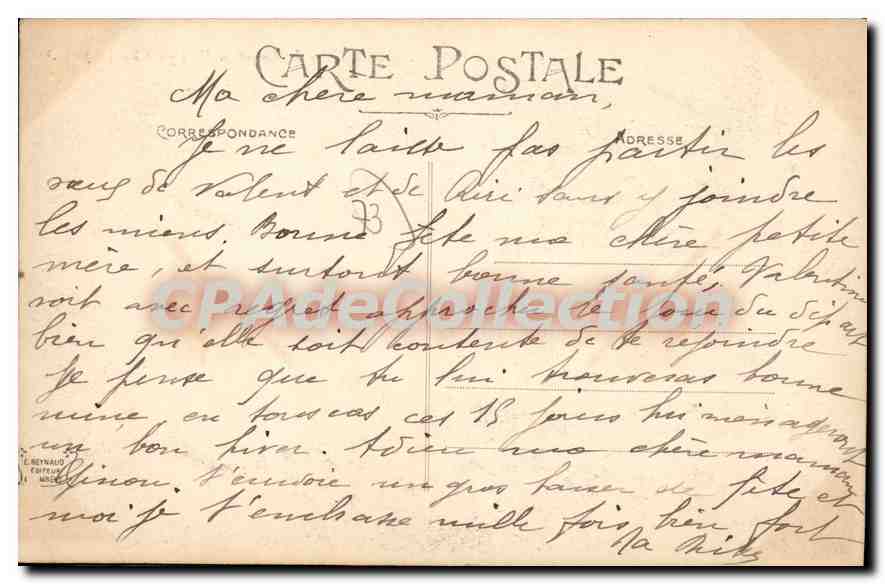 CARTE POSTALE
Ma chère maman,
CORRESPONDANCE
ADRESSE
Je ne laisse pas partir les
vœux de Valent et de sans y joindre
73
les miens. Bonne fête ma chère petite
mère, et surtout bonne santé, Valentine
voit avec regret approcher le jour du départ
CPAdeCollection.com
bien qu'elle soit contente de te rejoindre
Je pense que tu lui trouveras bonne
mine, en tous cas ces 15 jours lui ménageront
un bon hiver. Adieu ma chère maman
E. REYNAUD
EDITEUR
t'envoie un gros baiser de fête et
moi je t'embrasse mille fois bien fort
Ta